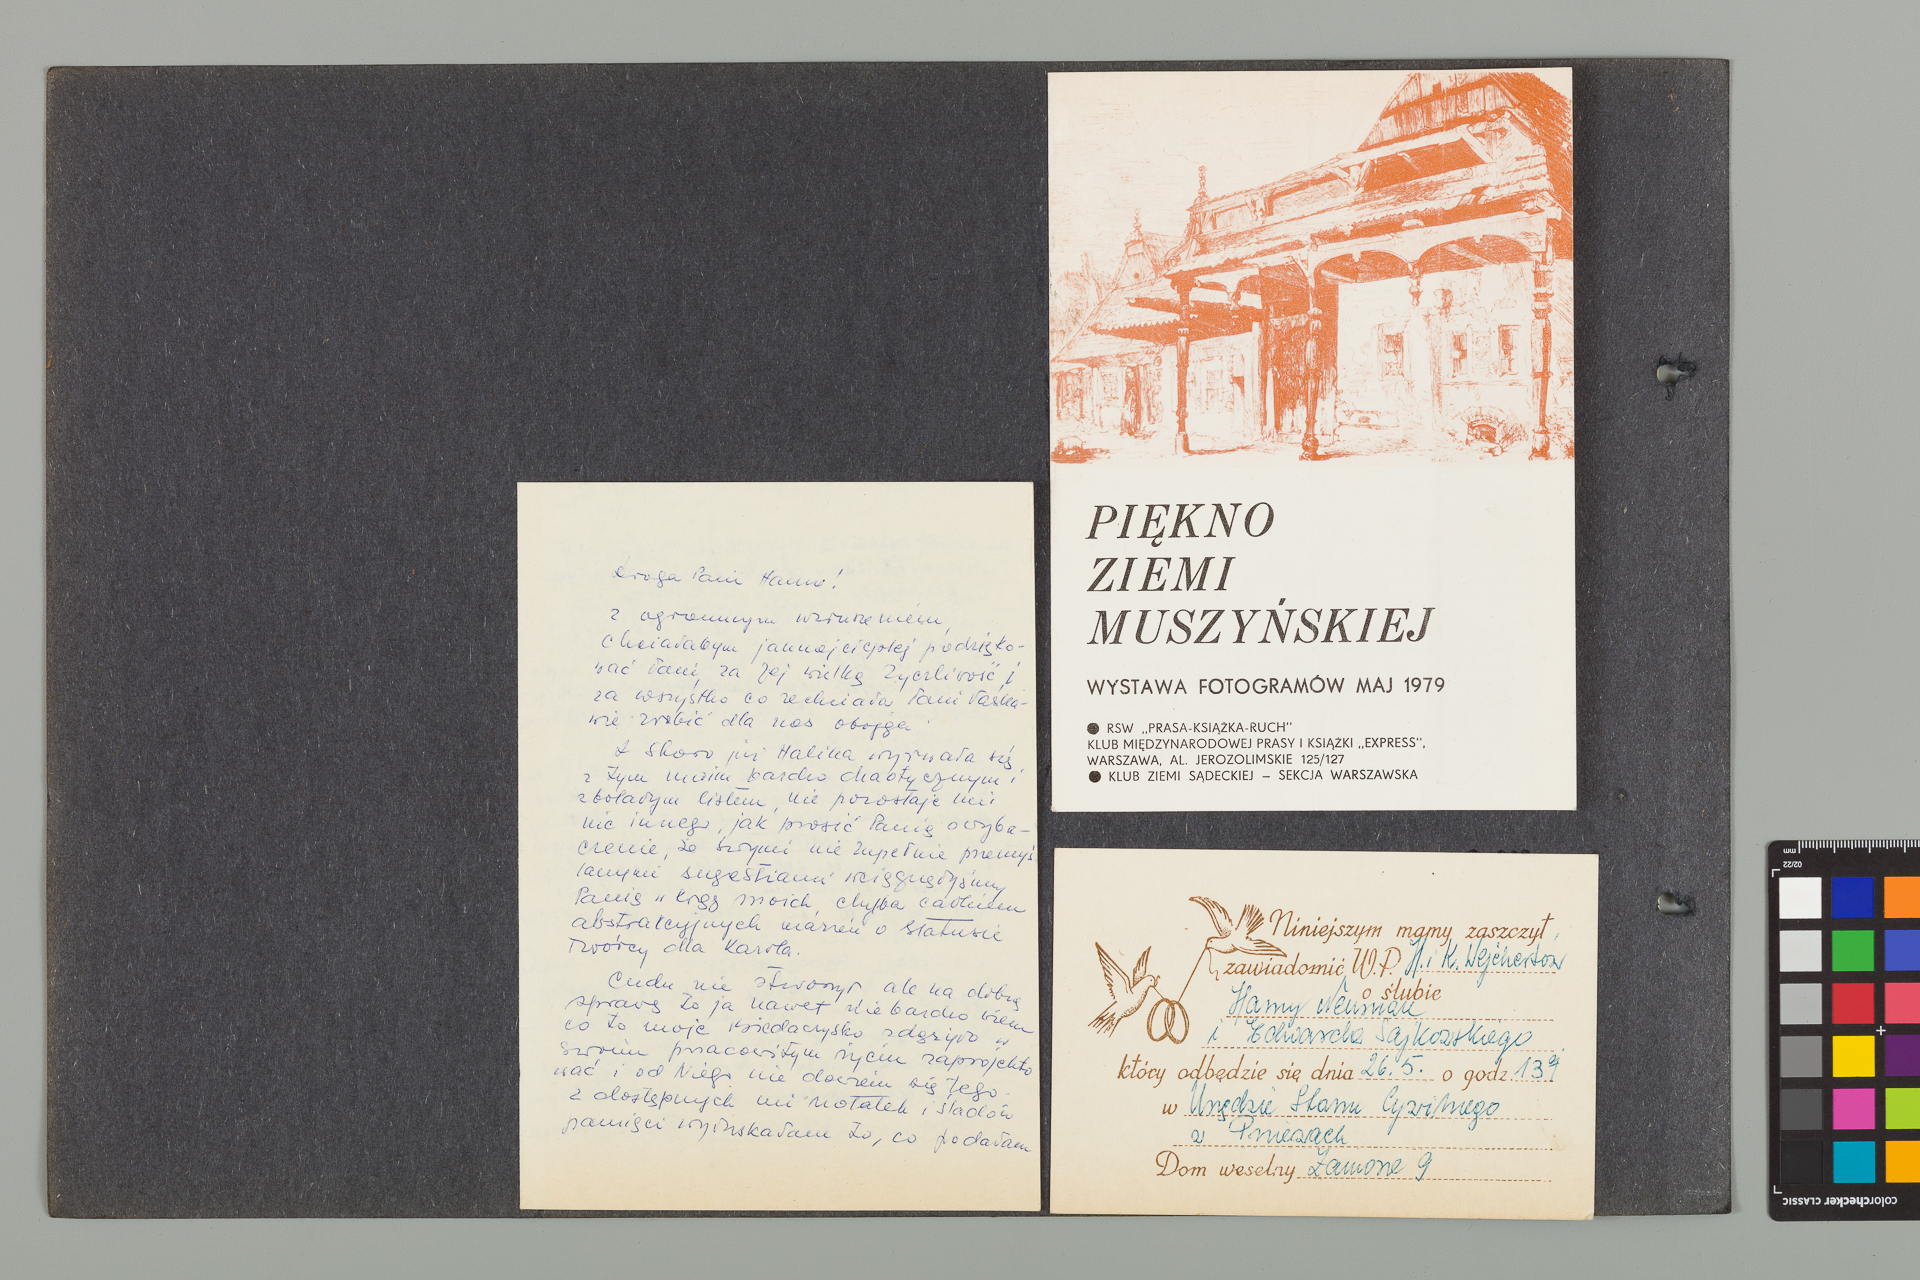 Droga Pani Hanno!
Z ogromnym wzruszeniem
chciałabym jaknajcieplej podzięko-
wać Pani, za Jej wielką życzliwość i
za wszystko co zechciała Pani łaska-
wie zrobić dla nas obojga.
A skoro już Halina wyrwała się
z tym moim bardzo chaotycznym i
zbolałym listem, nie pozostaje mi
nic innego, jak prosić Panią o wyba-
czenie, że swymi nie zupełnie przemyś
lanymi sugestiami wciągnęłyśmy
Panią w krąg moich chyba całkiem
abstrakcyjnych marzeń o Statusie
Twórcy dla Karola.
Cudu nie stworzył ale na dobrą
sprawę to ja nawet nie bardzo wiem
co to moje zdążyło w
swoim pracowitym życiu zaprojekto
wać i od Niego nie dowiem się tego.
Z dostępnych mi notatek i śladów
pamięci wyłuskałam to, co podałam
PIĘKNO
ZIEMI
MUSZYŃSKIEJ
WYSTAWA FOTOGRAMÓW MAJ 1979
● RSW „PRASA-KSIĄŻKA-RUCH"
KLUB MIĘDZYNARODOWEJ PRASY I KSIĄŻKI „EXPRESS",
WARSZAWA, AL. JEROZOLIMSKIE 125/127
● KLUB ZIEMI SĄDECKIEJ – SEKCJA WARSZAWSKA
Niniejszym mamy zaszczyt
zawiadomić W.P. H. i K. Wejchertów
o ślubie
Hanny Neuman
i Edwarda Sajkowskiego
który odbędzie się dnia 26.5. o godz. 13
w Urzędzie Stanu Cywilnego
w Pniewach
Dom weselny Zamorze 9
mm
02/22
colorchecker CLASSIC